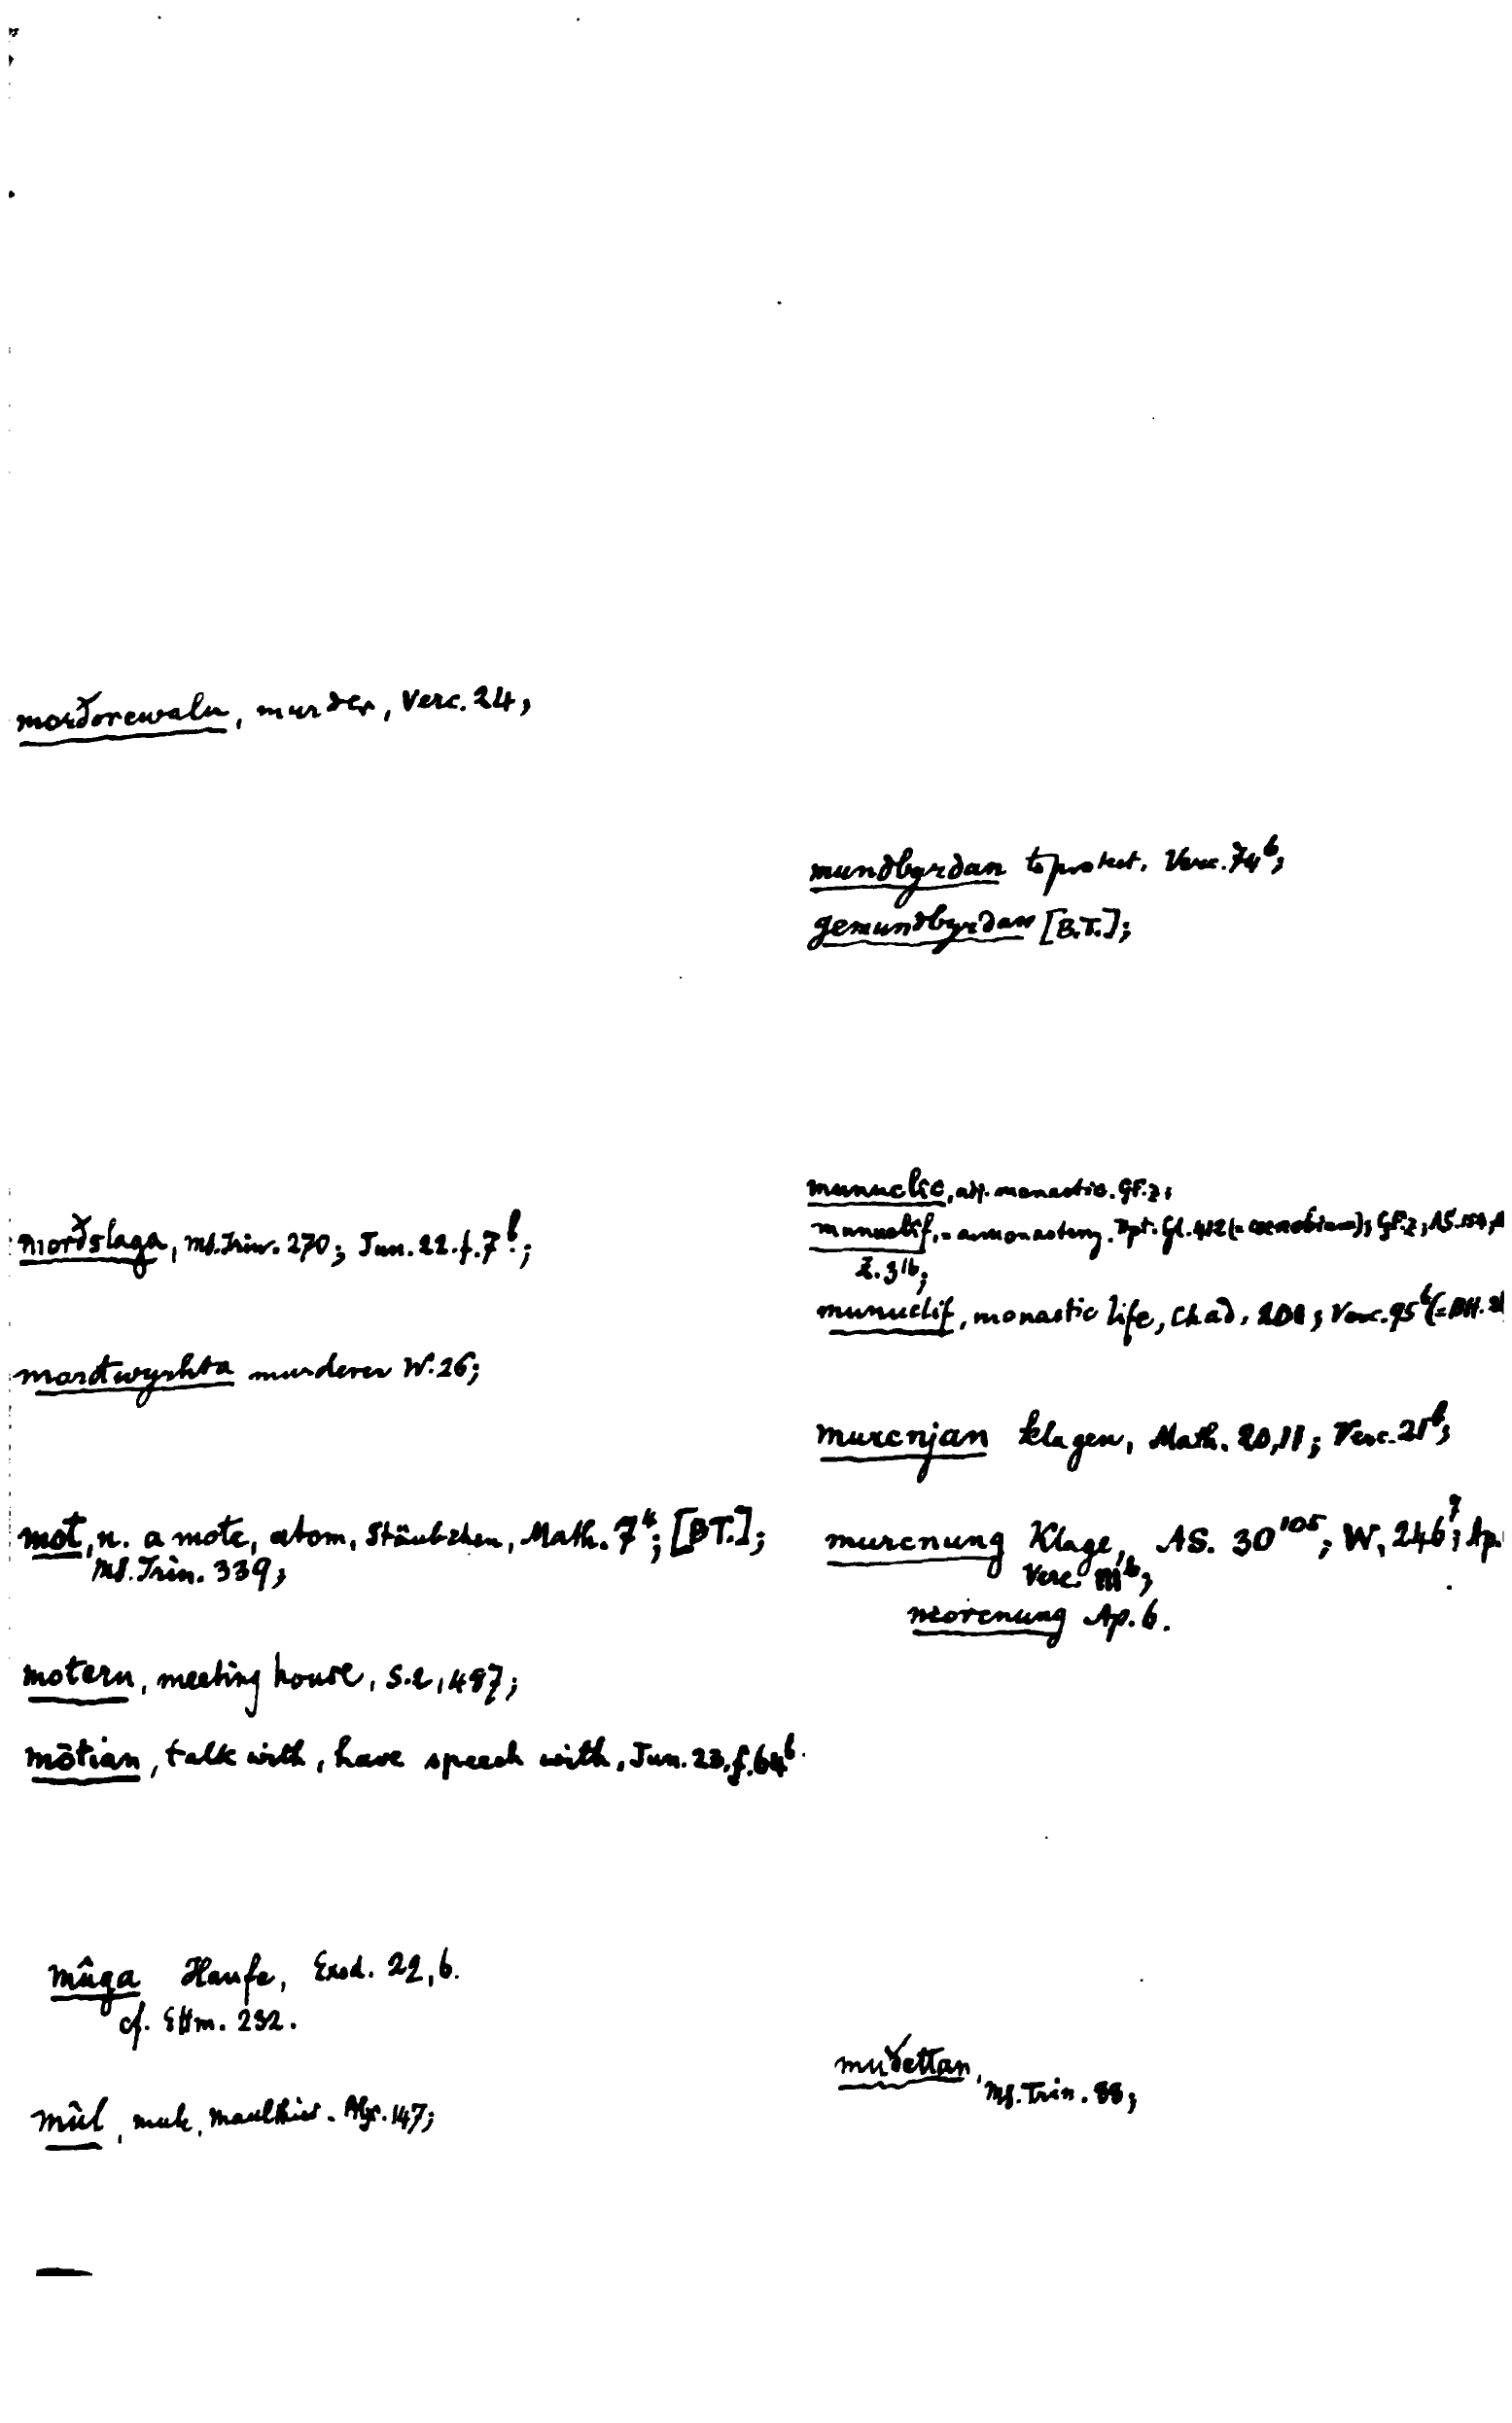 morðorcwalu, murder, Verc. 24;
morðslaga, Ms. Trin. 270; Jun. 22. f. 7b;
morðwyrhta murderer W. 26;
mot, n. a mote, atom, Stäubchen, Math. 7⁴; [BT.];
Ms. Trin. 339;
motern, meeting house, S. 2, 487;
mōtian, talk with, have speech with, Jun. 23. f. 64b.
mûga Haufe, Exod. 22, 6.
cf. Ettm. 232.
mûl, mule, Maulthier. Ælfr. 147;
mundbyrdan to protect. Verc. 74b;
gemundbyrdan [B.T.];
munuclic, adj. monastic. GF. 2;
munuclif, = a monastery. Dpt. Gl. 412 (= coenobium); GF. 2; AS. 154,
Z. 31b;
munuclif, monastic life, Chad. 201; Verc. 95b (= BH.
murcnjan klagen, Math. 20,11; Verc. 21b;
murcnung Klage, AS. 30¹⁰⁵; W. 246⁷; Ap.
Verc.
morcnung Ap. 6.
muðettan, Ms. Trin. 88;